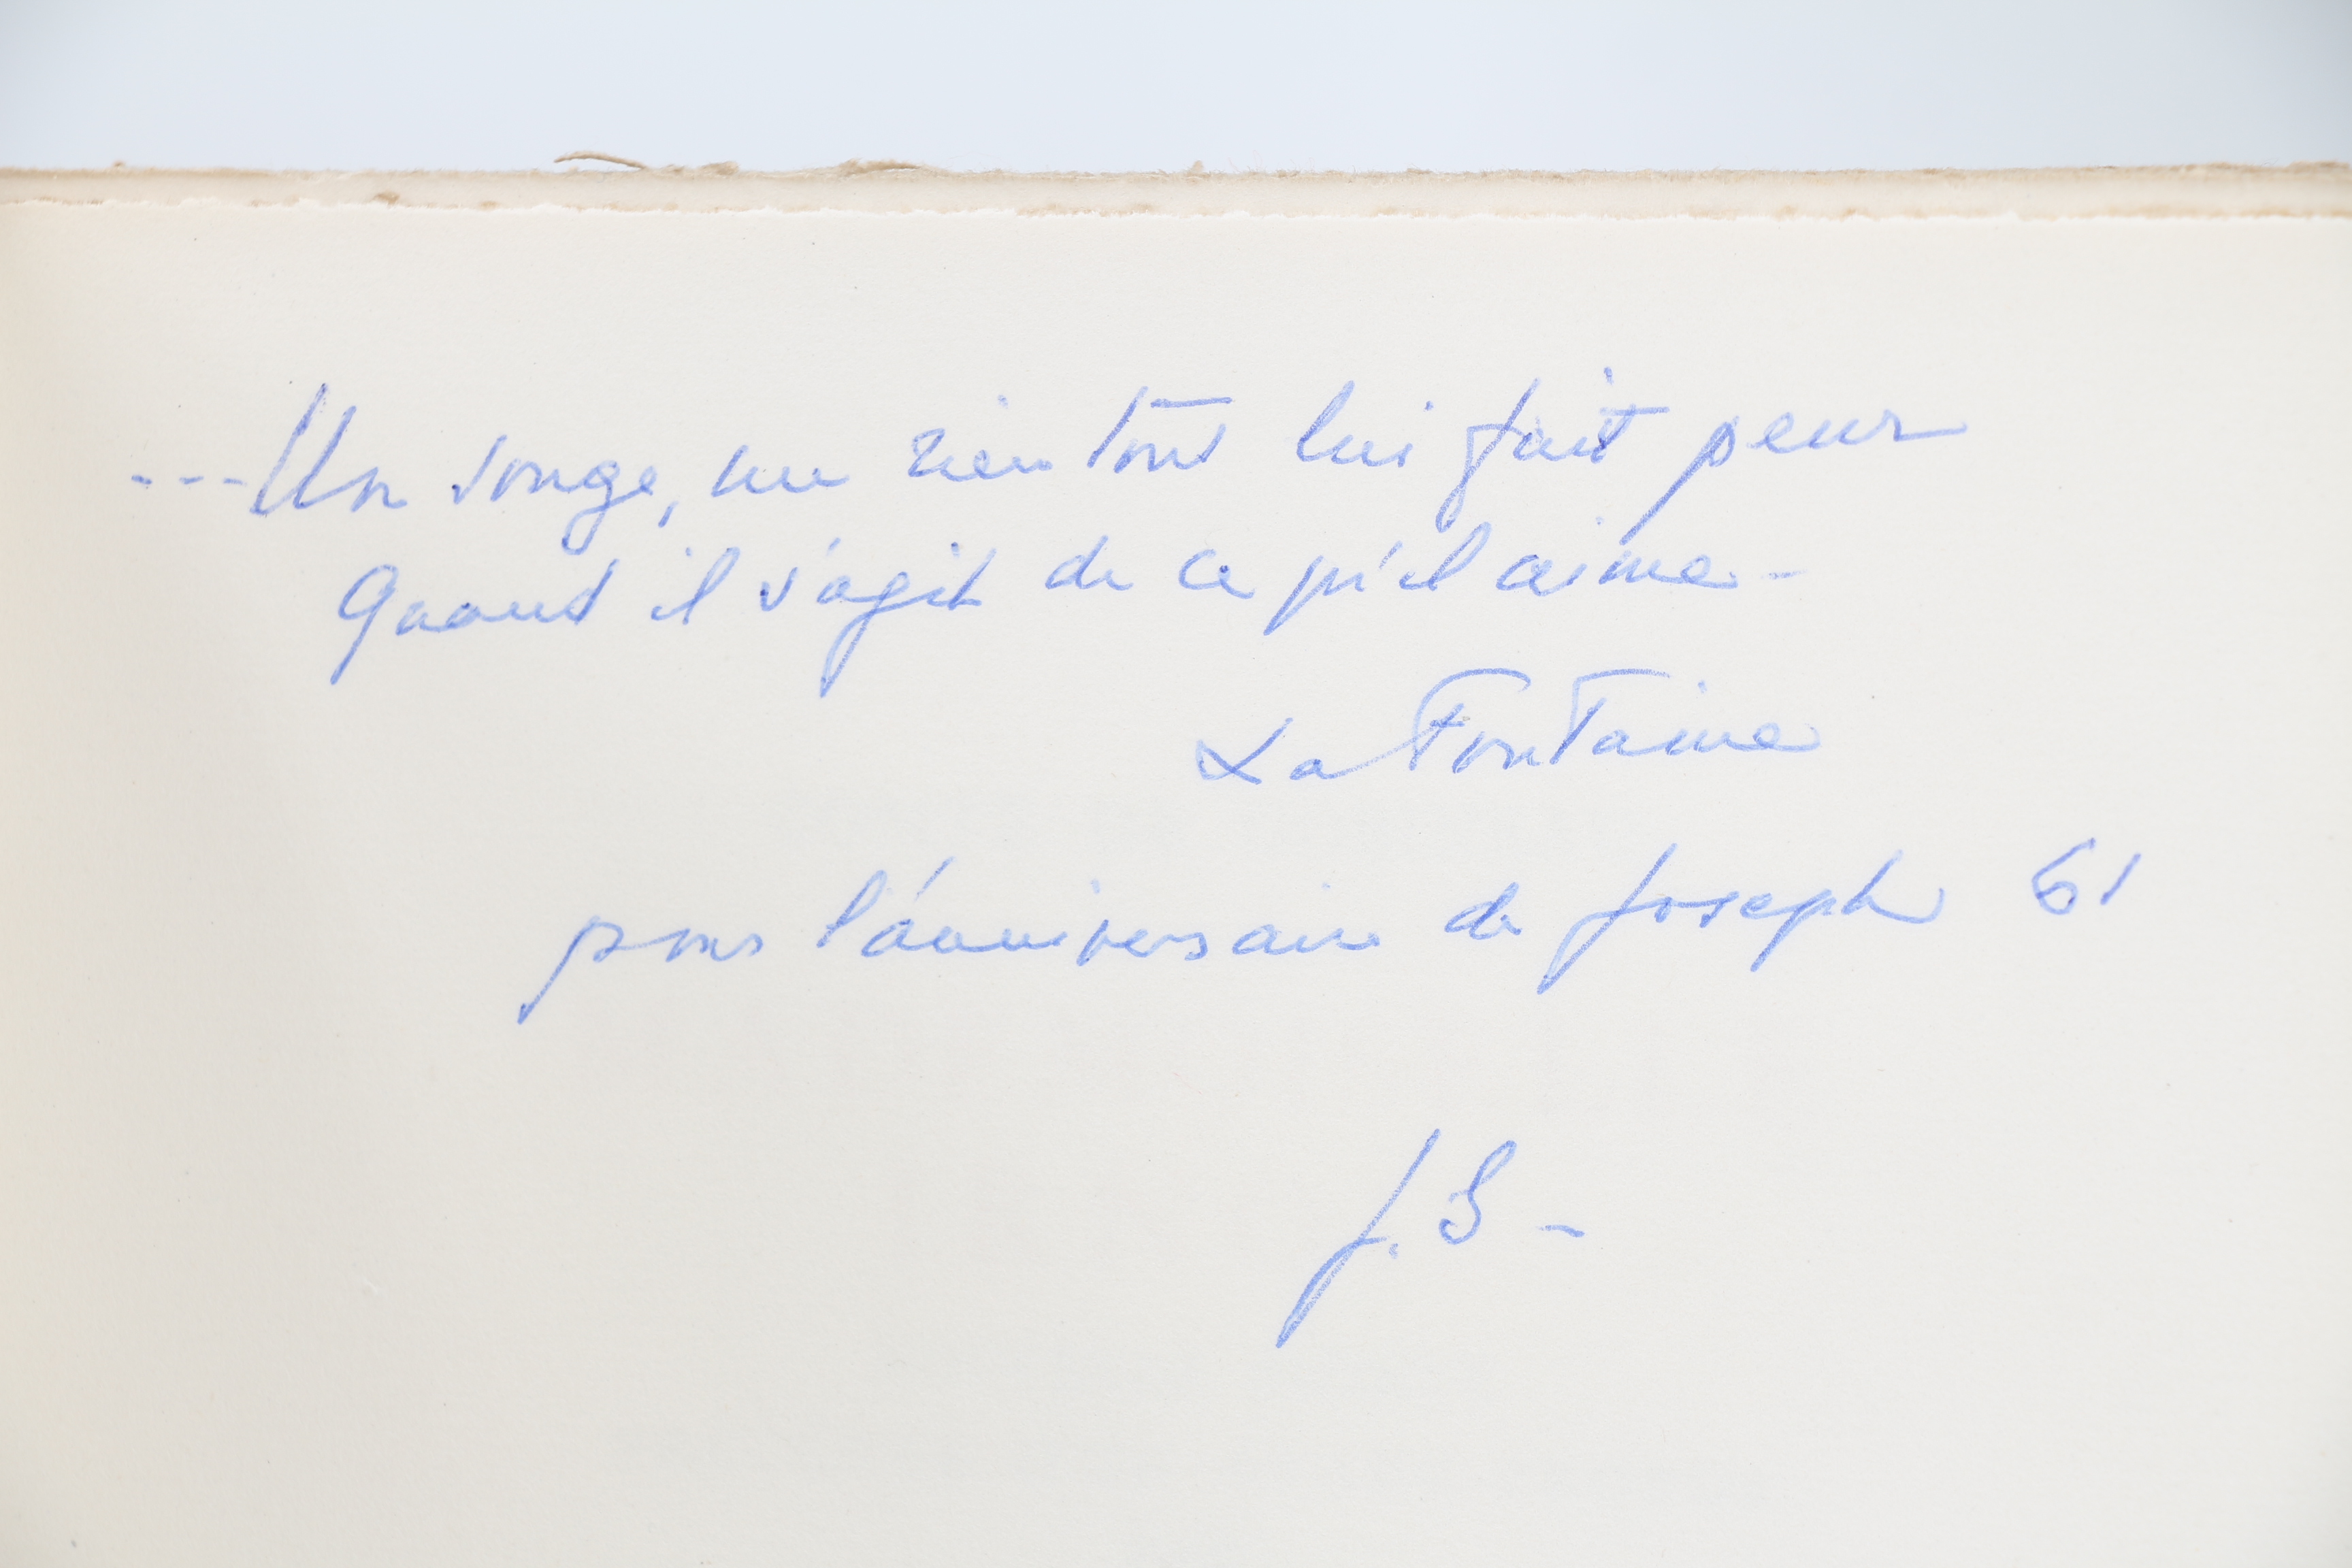 ---Un songe, un rien tout lui fait peur
Quand il s'agit de ce qu'il aime -
La Fontaine
pour l'anniversaire de Joseph 61
J. S -